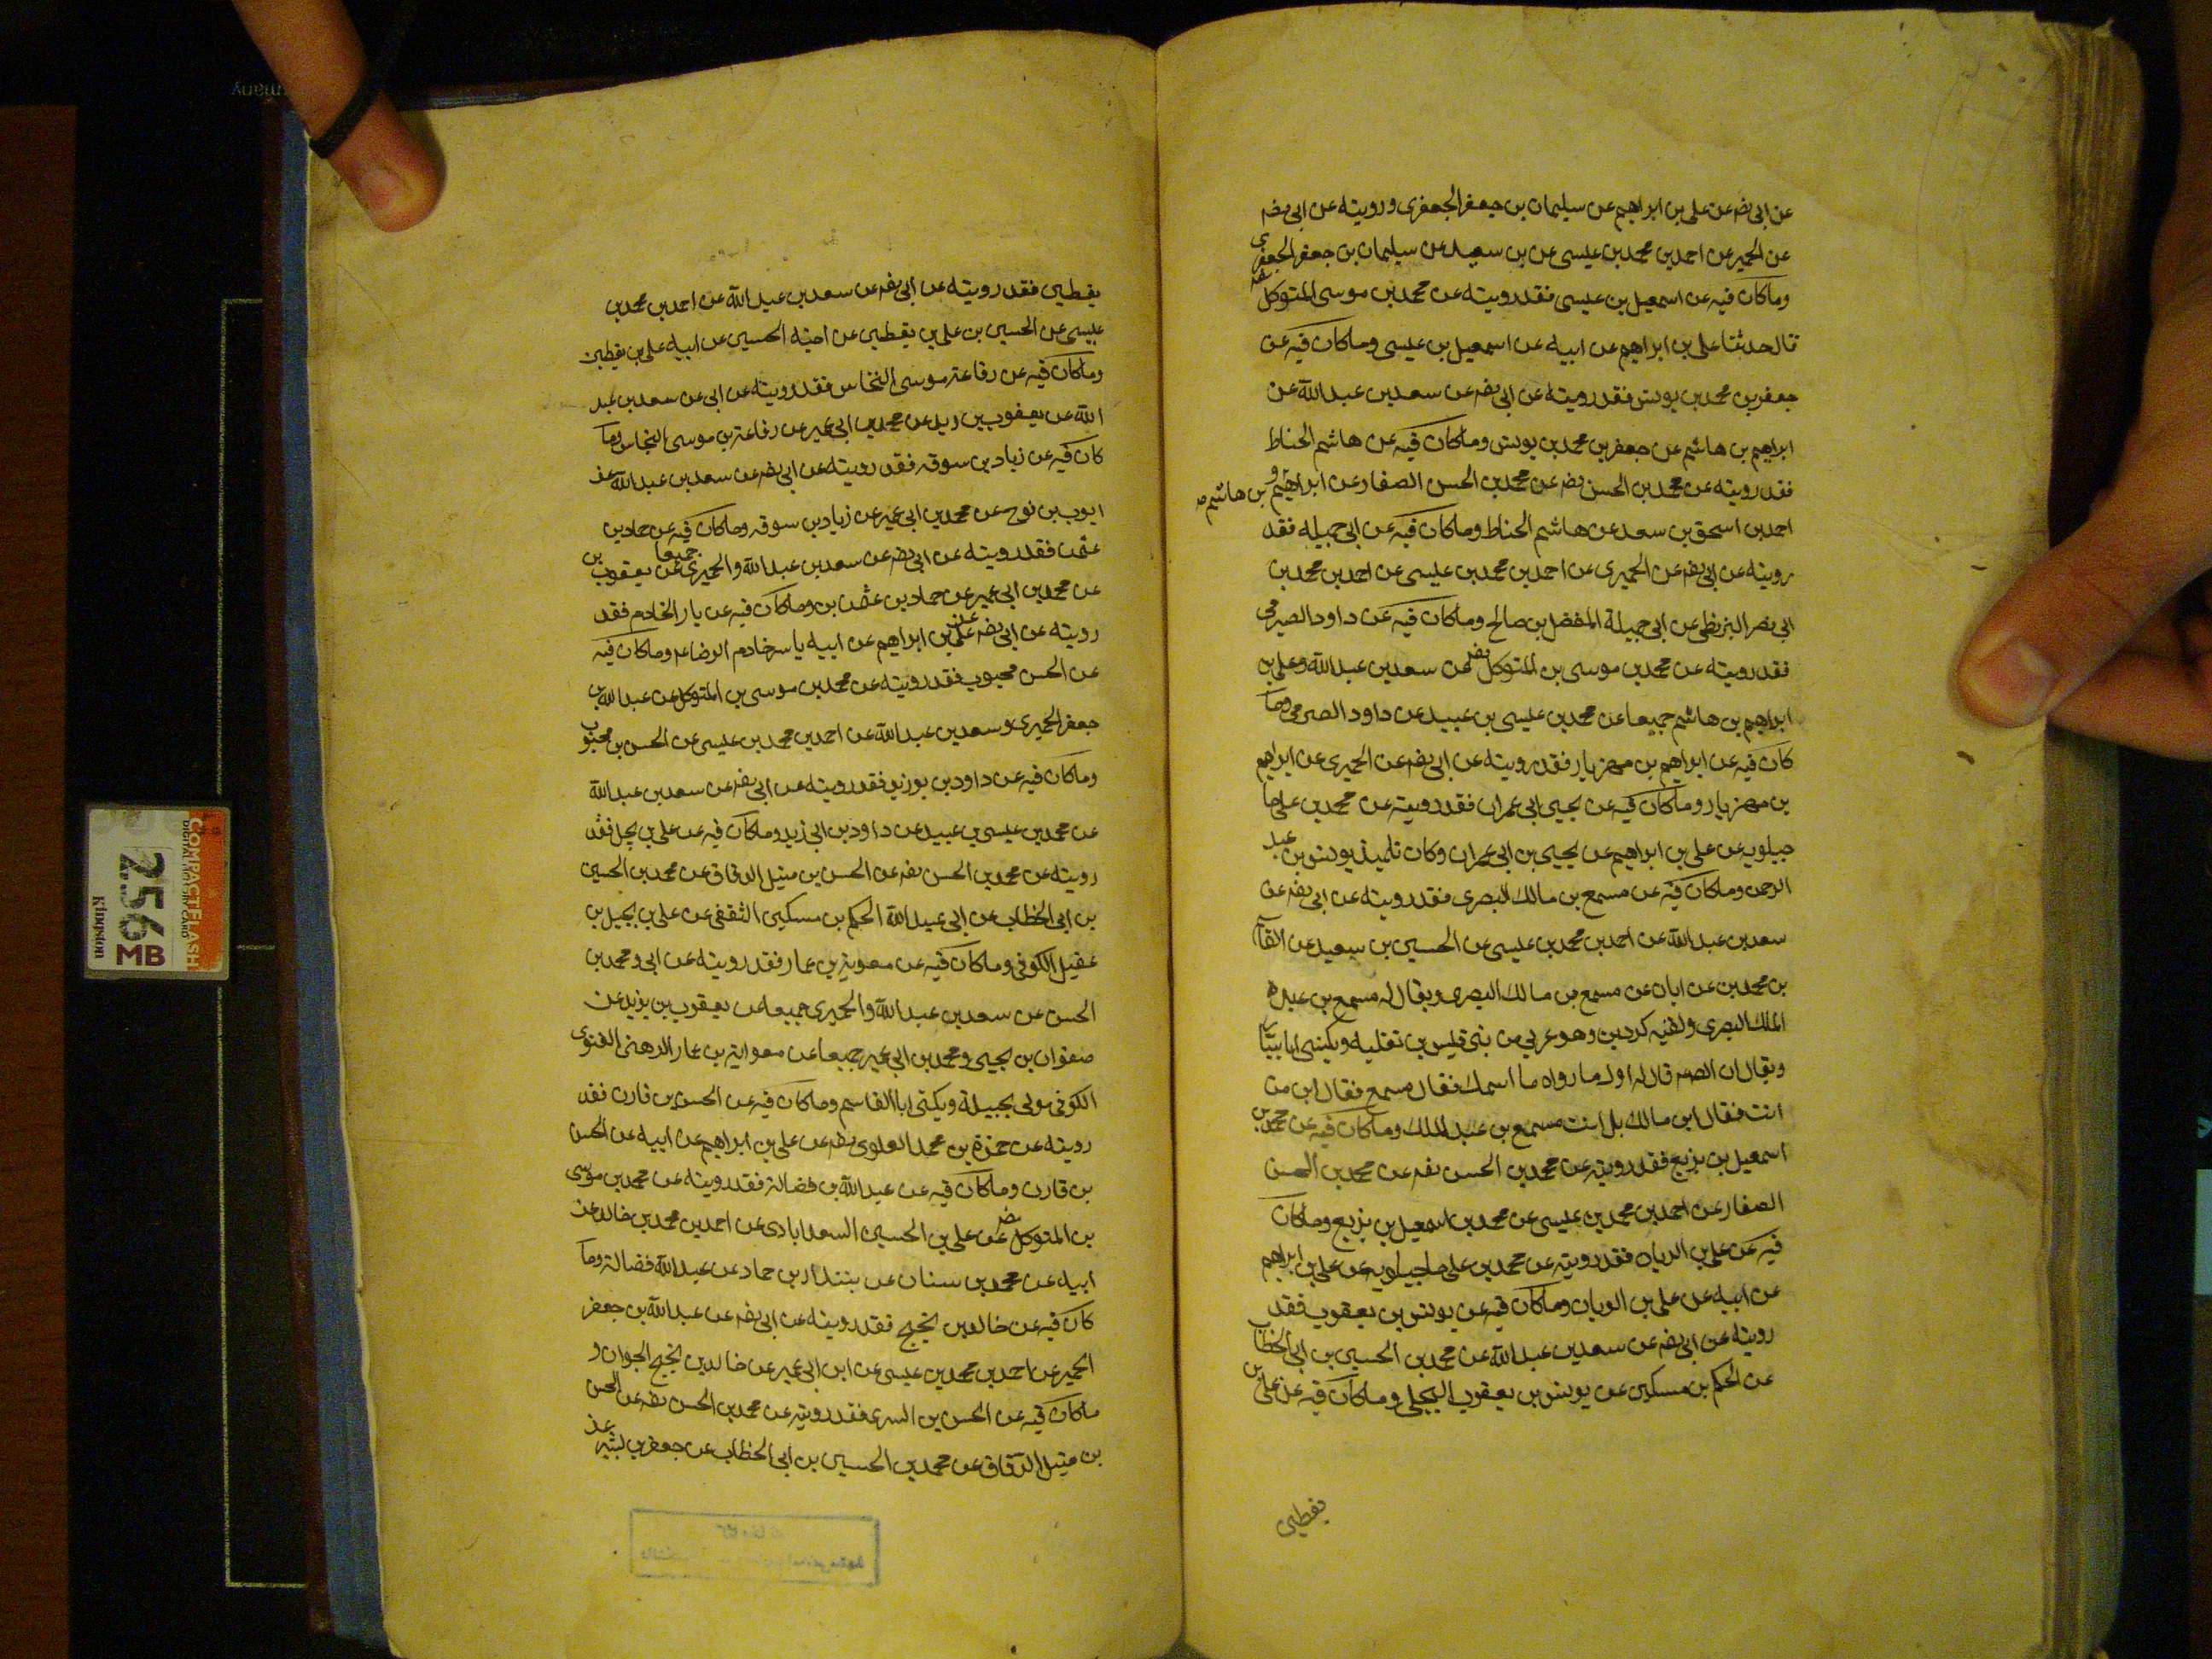 عن ابي رضه عن علي بن ابراهيم عن سليمان بن جعفر الجعفري ورويته عن ابي رضه
عن الحمير عن احمد بن محمد بن عيسى عن بن سعيد عن سليمان بن جعفر الجعفري
وما كان فيه عن اسمعيل بن عيسى فقد رويته عن محمد بن موسى المتوكل رضه
قال حدثنا علي بن ابراهيم عن ابيه عن اسمعيل بن عيسى وما كان فيه عن
جعفر بن محمد بن يونس فقد رويته عن ابي رضه عن سعد بن عبد الله عن
ابراهيم بن هاشم عن جعفر بن محمد بن يونس وما كان فيه عن هاشم الحناط
فقد رويته عن محمد بن الحسن رضه عن محمد بن الحسن الصفار عن ابراهيم بن هاشم و
احمد بن اسحق بن سعد عن هاشم الحناط وما كان فيه عن ابي جميله فقد
رويته عن ابي رضه عن الحميري عن احمد بن محمد بن عيسى عن احمد بن محمد بن
ابي نصر البزنطي عن ابي جميلة المفضل بن صالح وما كان فيه عن داود الصيرمى
فقد رويته عن محمد بن موسى بن المتوكل رضه عن سعد بن عبد الله وعلي بن
ابراهيم بن هاشم جميعا عن محمد بن عيسى بن عبيد عن داود الصرمى وما
كان فيه عن ابراهيم بن مهزيار فقد رويته عن ابي رضه عن الحميري عن ابراهيم
بن مهزيار وما كان فيه عن يحيى ابي عمران فقد رويته عن محمد بن علي ما
جيلويه عن علي بن ابراهيم عن يحيى بن ابي عمران وكان تلميذ يونس بن عبد
الرحمن وما كان فيه عن مسمع بن مالك البصري فقد رويته عن ابي رضه عن
سعد بن عبد الله عن احمد بن محمد بن عيسى عن الحسين بن سعيد عن القا
بن محمد بن عن ابان عن مسمع بن مالك البصري ويقال له مسمع بن عبد
الملك البصري ولقبه كردين وهو عربي من بني قيس بن ثعلبه ويكنى ابا
ويقال ان الصه قال له اول ما رواه ما اسمك فقال مسمع فقال ابن من
انت فقال ابن مالك بل انت مسمع بن عبد الملك وما كان فيه عن محمد بن
اسمعيل بن بزيع فقد رويته عن محمد بن الحسن رضه عن محمد بن الحسن
الصفار عن احمد بن محمد بن عيسى عن محمد بن اسمعيل بن بزيع وما كان
فيه عن علي بن الريان فقد رويته عن محمد بن علي ماجيلويه عن علي بن ابراهيم
عن ابيه عن علي بن الريان وما كان فيه عن يونس بن يعقوب فقد
رويته عن ابي رضه عن سعد بن عبد الله عن محمد بن الحسين بن ابي الخطاب
عن الحكم بن مسكين عن يونس بن يعقوب البجلي وما كان فيه عن علي بن
يقطين
يقطين فقد رويته عن ابي رضه عن سعد بن عبد الله عن احمد بن محمد بن
عيسى عن الحسين بن علي بن يقطين عن اخيه الحسين عن ابيه علي بن يقطين
وما كان فيه عن رفاعة موسى النخاس فقد رويته عن ابي عن سعد بن عبد
الله عن يعقوب بن زيد عن محمد بن ابي عمير عن رفاعة بن موسى النخاس وما
كان فيه عن زياد بن سوقه فقد رويته عن ابي رضه عن سعد بن عبد الله عن
ايوب بن نوح عن محمد بن ابي عمير عن زياد بن سوقه وما كان فيه عن حماد بن
عثمن فقد رويته عن ابي رضه عن سعد بن عبد الله والحميري جميعا عن يعقوب بن
عن محمد بن ابي عمير عن حماد بن عثمن بن وما كان فيه عن يار الخادم فقد
رويته عن ابي رضه عن علي بن ابراهيم عن ابيه ياسر خادم الرضاء وما كان فيه
عن الحسن محبوب فقد رويته عن محمد بن موسى بن المتوكل عن عبد الله بن
جعفر الحميري وسعد بن عبد الله عن احمد بن محمد بن عيسى عن الحسن بن محبوب
وما كان فيه عن داود بن بوزيد فقد رويته عن ابي رضه عن سعد بن عبد الله
عن محمد بن عيسى بن عبيد عن داود بن ابي زيد وما كان فيه عن علي بن بجل فقد
رويته عن محمد بن الحسن رضه عن الحسن بن متيل الدقاق عن محمد بن الحسين
بن ابي الخطاب عن ابي عبد الله الحكم بن مسكين الثقفي عن علي بن بجيل بن
عقيل الكوفي وما كان فيه عن معوية بن عمار فقد رويته عن ابي ومحمد بن
الحسن عن سعد بن عبد الله والحميري جميعا عن يعقوب بن يزيد عن
صفوان بن يحيى ومحمد بن ابي عمير جميعا عن معوية بن عمار الدهني الغنوى
الكوفي مولى بجيلة ويكنى ابا القاسم وما كان فيه عن الحسن بن قارن فقد
رويته عن حمزة بن محمد العلوي رضه عن علي بن ابراهيم عن ابيه عن الحسن
بن قارن وما كان فيه عن عبد الله بن فضالة فقد رويته عن محمد بن موسى
بن المتوكل رضه عن علي بن الحسين السعدابادي عن احمد بن محمد بن خالد عن
ابيه عن محمد بن سنان عن بندار بن حماد عن عبد الله فضالة وما
كان فيه عن خالد بن نجيح فقد رويته عن ابي رضه عن عبد الله بن جعفر
الحمير عن احمد بن محمد بن عيسى عن ابن ابي عمير عن خالد بن نجيح الجوان و
ما كان فيه عن الحسن بن السرى فقد رويته عن محمد بن الحسن رضه عن الحسن
بن متيل الدقاق عن محمد بن الحسين بن ابي الخطاب عن جعفر بن بشير عن
COMPACTFLASH
DIGITAL MEMORY CARD
256 MB
Kingston